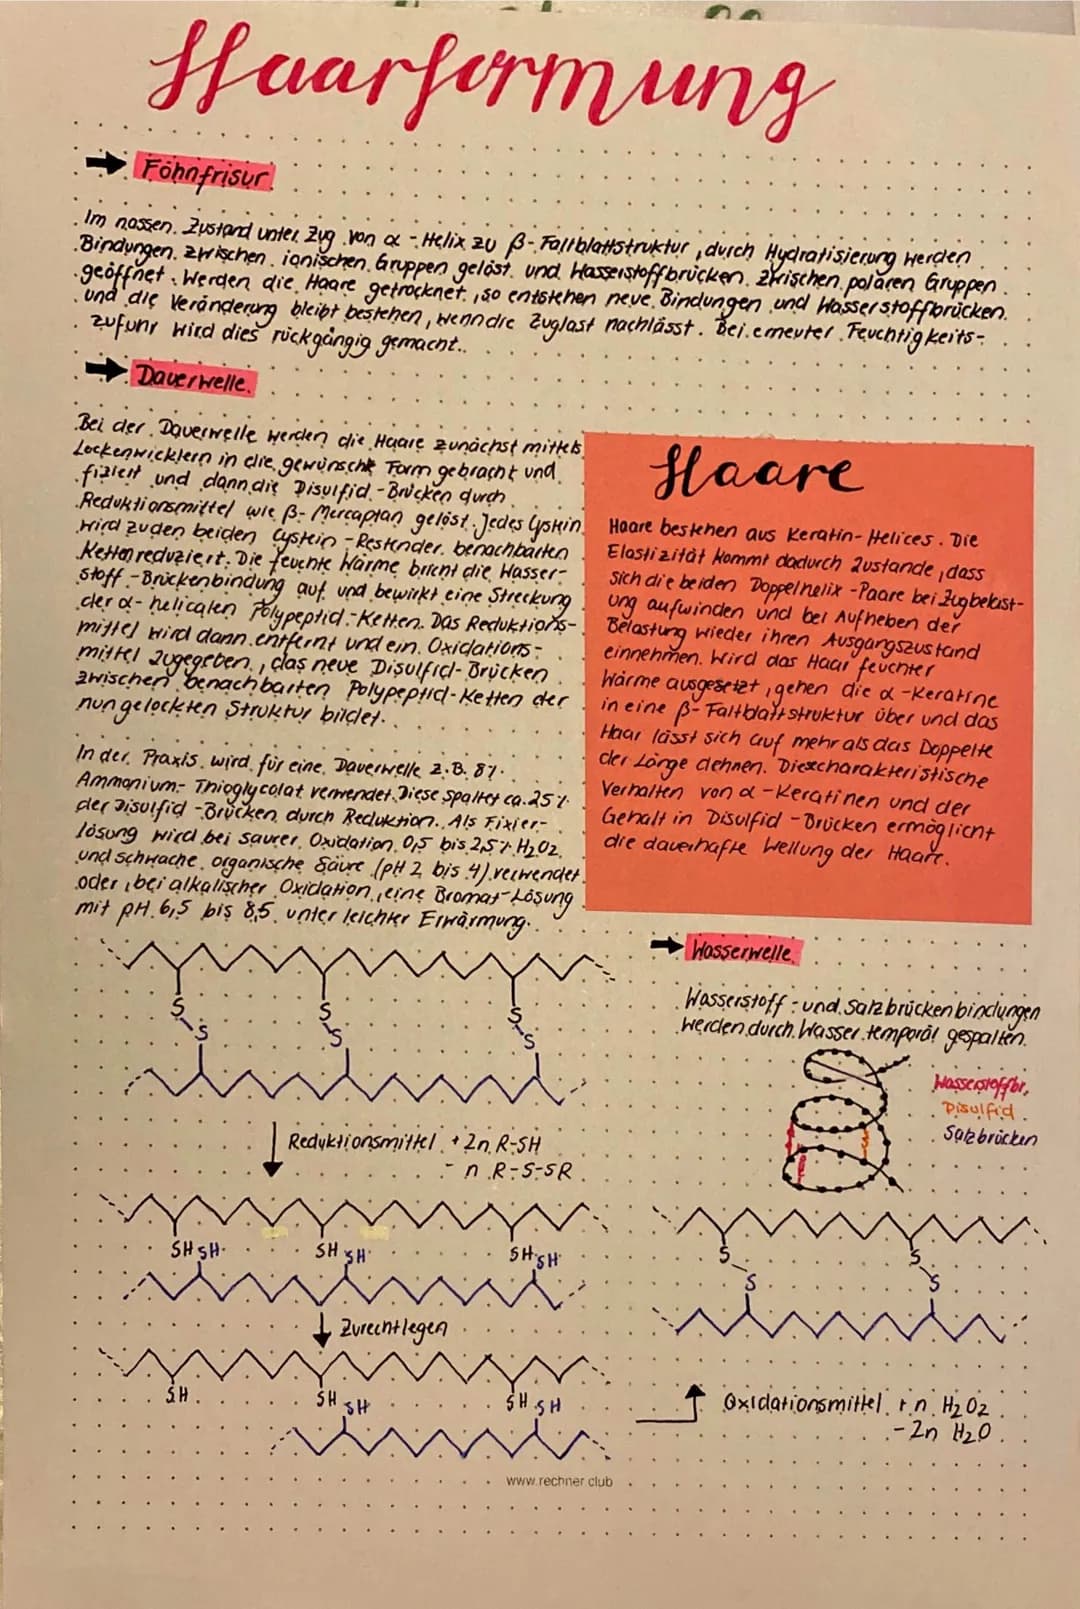 Haarformung
→ Föhnfrisur
Im nassen Zustand unter Zug von α-Helix zu β-Faltblattstruktur, durch Hydratisierung werden
Bindungen zwischen ionischen Gruppen gelöst und Wasserstoffbrücken zwischen polaren Gruppen
geöffnet. Werden die Haare getrocknet, so entstehen neue Bindungen und Wasserstoffbrücken
und die Veränderung bleibt bestehen, wenn die Zuglast nachlässt. Bei erneuter Feuchtigkeits-
zufuhr wird dies rückgängig gemacht.
→ Dauerwelle
Bei der Dauerwelle werden die Haare zunächst mittels
Lockenwicklern in die gewünscht Form gebracht und
fixiert und dann die Disulfid-Brücken durch
Reduktionsmittel wie β-Mercaptan gelöst. Jedes Cystein
wird zu den beiden Cystein-Restender benachbarten
Ketten reduziert. Die feuchte Wärme bricht die Wasser-
stoff-Brückenbindung auf und bewirkt eine Streckung
der α-helicalen Polypeptid-Ketten. Das Reduktions-
mittel wird dann entfernt und ein Oxidations-
mittel zugegeben, das neue Disulfid-Brücken
zwischen benachbarten Polypeptid-Ketten der
nun gelockten Struktur bildet.
In der Praxis wird für eine Dauerwelle z.B. 8%
Ammonium-Thioglycolat verwendet. Diese spaltet ca. 25%
der Disulfid-Brücken durch Reduktion. Als Fixier-
lösung wird bei saurer Oxidation 0,5 bis 2,5% H2O2
und schwache organische Säure (pH 2 bis 4) verwendet
oder, bei alkalischer Oxidation, eine Bromat-Lösung
mit pH 6,5 bis 8,5 unter leichter Erwärmung.
Haare
Haare bestehen aus Keratin-Helices. Die
Elastizität kommt dadurch zustande, dass
sich die beiden Doppelhelix-Paare bei Zugbelast-
ung aufwinden und bei Aufheben der
Belastung wieder ihren Ausgangszustand
einnehmen. Wird das Haar feuchter
Wärme ausgesetzt, gehen die α-Keratine
in eine β-Faltblattstruktur über und das
Haar lässt sich auf mehr als das Doppelte
der Länge dehnen. Diese charakteristische
Verhalten von α-Keratinen und der
Gehalt in Disulfid-Brücken ermöglicht
die dauerhafte Wellung der Haare.
→ Wasserwelle
Wasserstoff- und Salzbrückenbindungen
werden durch Wasser temporär gespalten.
Wasserstoffbr.
Disulfid
Salzbrücken
S S S
S S S
Reduktionsmittel + 2n R-SH
- n R-S-SR
SH SH SH SH SH SH
Zurechtlegen
SH SH SH
SH SH
S S
S S
Oxidationsmittel + n H2O2
- 2n H2O
www.rechner.club